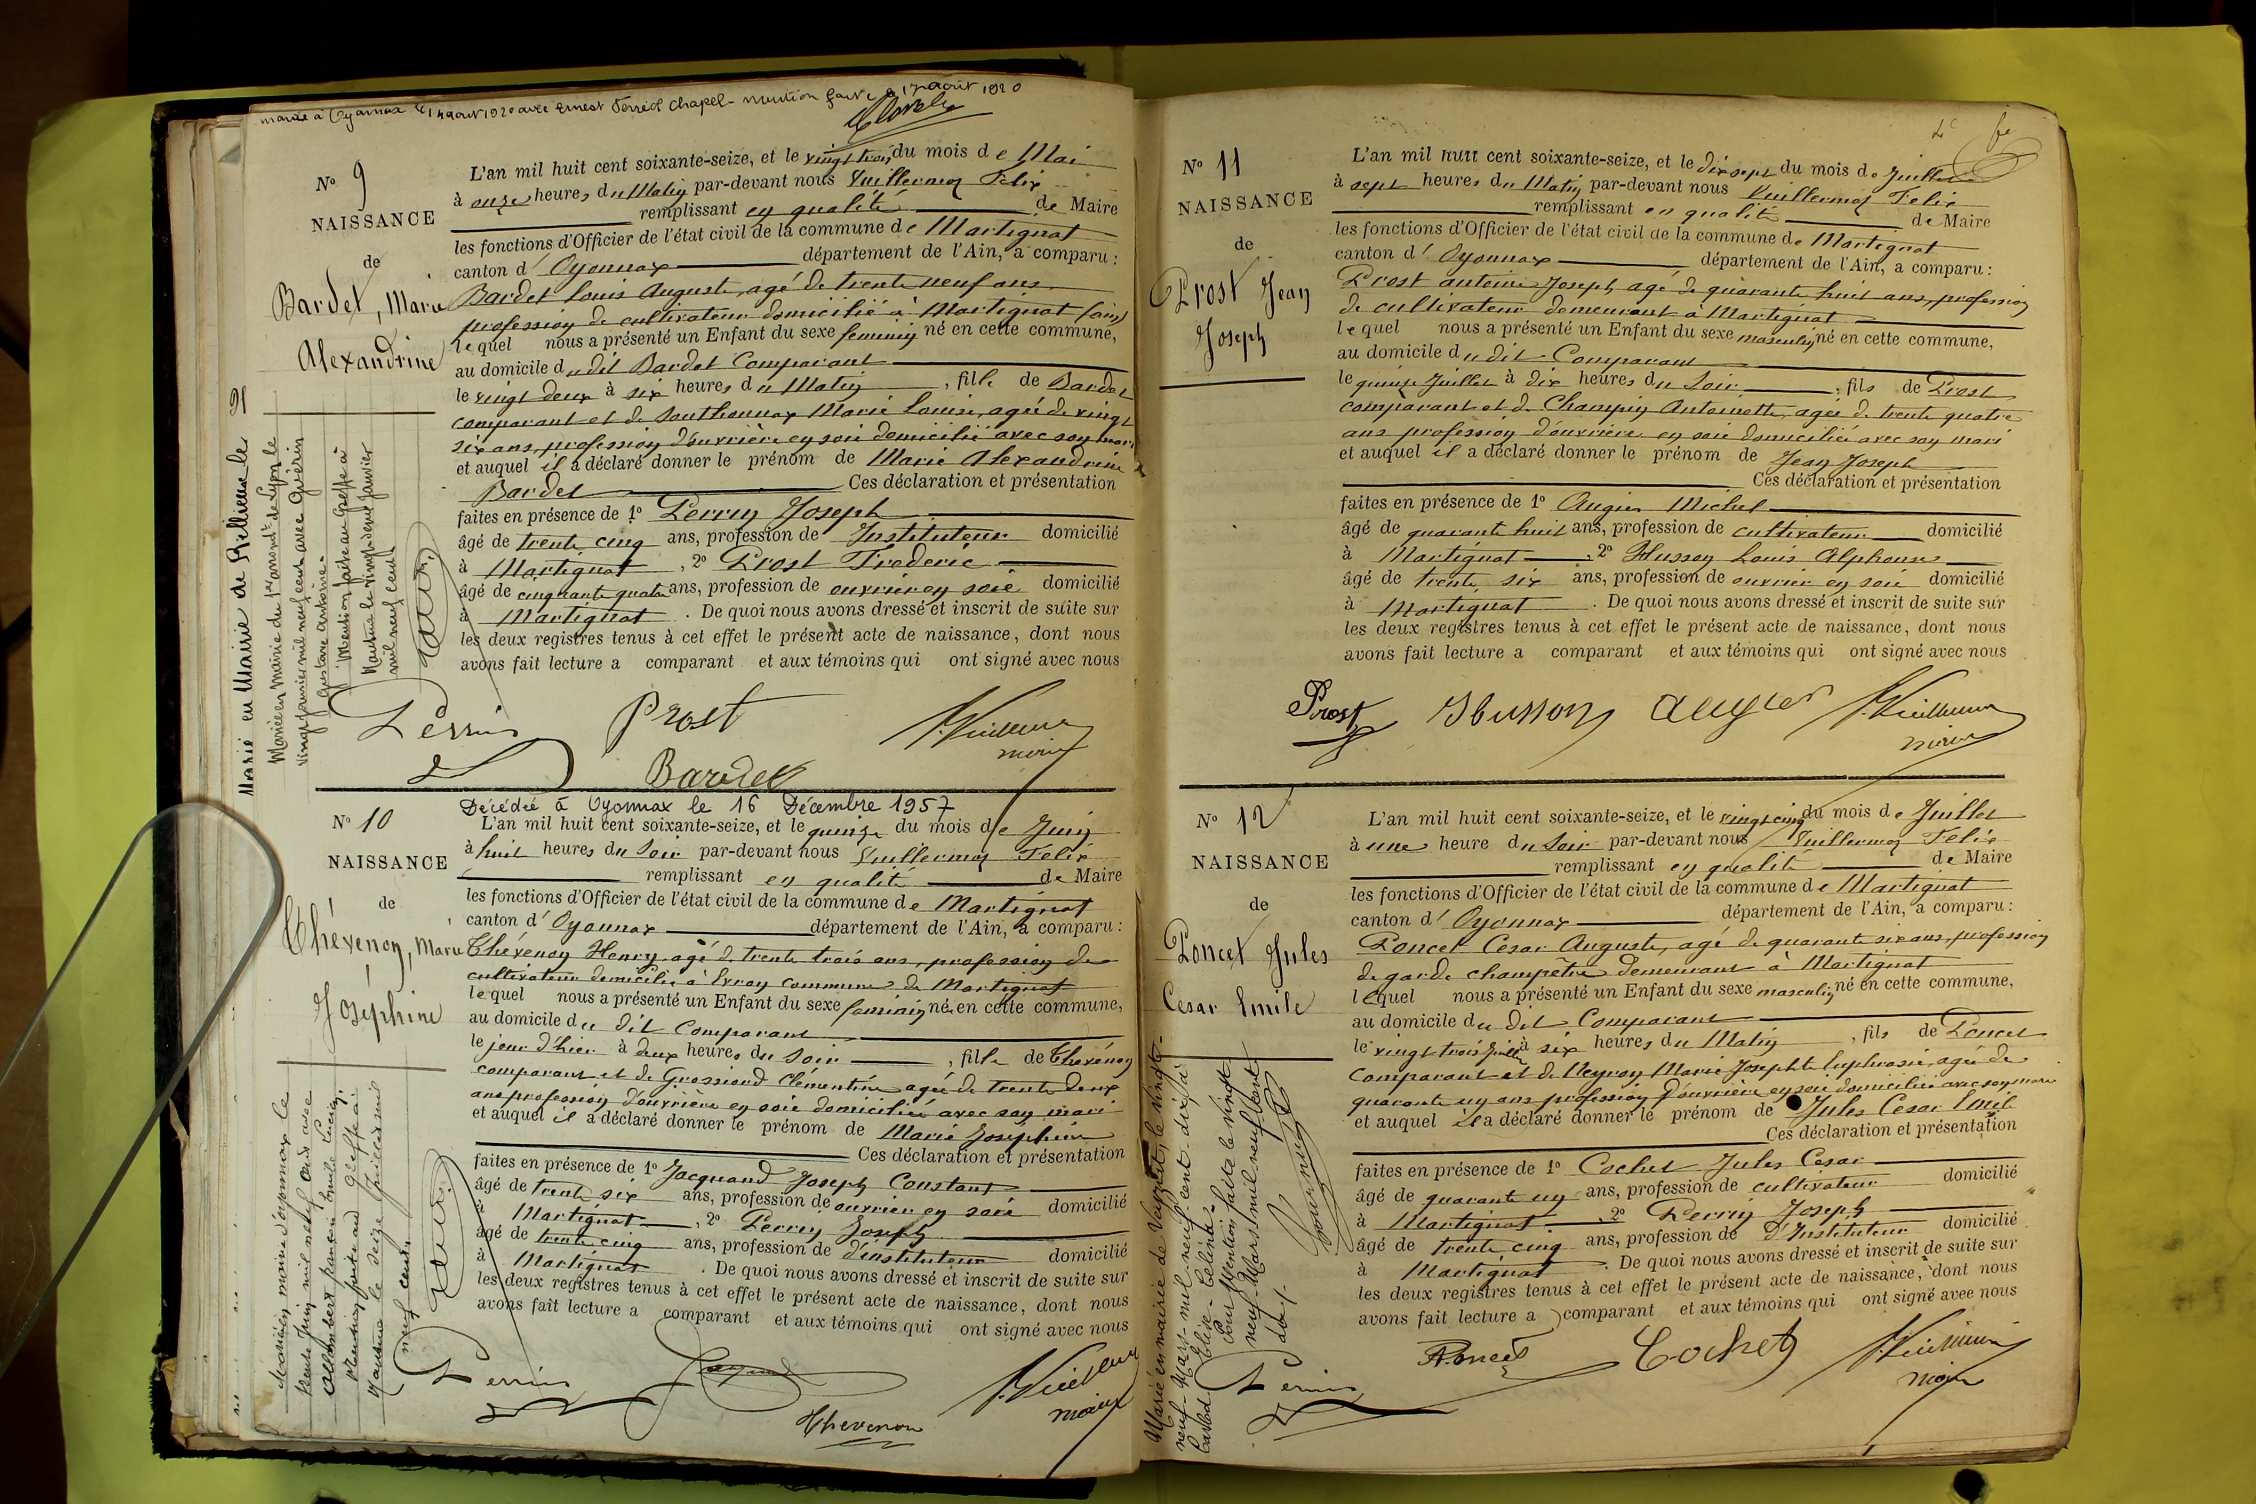 mariée à Oyonnax le 14 août 1920 avec Ernest Désiré Chapel - mention faite le 17 août 1920
N° 9
NAISSANCE
de
Bardet, Marie
Alexandrine
L'an mil huit cent soixante-seize, et le vingt trois du mois de Mai
à onze heures du Matin par-devant nous Vuillermoz Felix
remplissant en qualité de Maire
les fonctions d'Officier de l'état civil de la commune de Martignat
canton d'Oyonnax département de l'Ain, a comparu :
Bardet Louis Auguste, agé de trente neuf ans
profession de cultivateur domicilié à Martignat (ain)
lequel nous a présenté un Enfant du sexe feminin né en cette commune,
au domicile du dit Bardet Comparant
le vingt deux à six heures du Matin, fille de Bardet
comparant et de Southonnax Marie Louise, agée de vingt
six ans, profession d'ouvrière en soie domicilié avec son mari
et auquel il a déclaré donner le prénom de Marie Alexandrine
Bardet Ces déclaration et présentation
faites en présence de 1° Perrin Joseph
âgé de trente cinq ans, profession de Instituteur domicilié
à Martignat, 2° Prost Frederic
âgé de cinquante quatre ans, profession de ouvrier en soie domicilié
à Martignat. De quoi nous avons dressé et inscrit de suite sur
les deux registres tenus à cet effet le présent acte de naissance, dont nous
avons fait lecture a comparant et aux témoins qui ont signé avec nous
Perrin Prost F. Vuillermoz
maire
Bardet
Marié en Mairie de Rillieux le 21
Mariée en Mairie du 1er arrondt de Lyon le
vingt janvier mil neuf cent avec Guérin
Gustave Antoine.
Mention faite au Greffe à
Nantua le vingt-deux Janvier
mil neuf cent
N° 10
NAISSANCE
de
Thévenon, Marie
Joséphine
Décédée à Oyonnax le 16 Décembre 1957
L'an mil huit cent soixante-seize, et le quinze du mois de Juin
à huit heures du Soir par-devant nous Vuillermoz Felix
remplissant en qualité de Maire
les fonctions d'Officier de l'état civil de la commune de Martignat
canton d'Oyonnax département de l'Ain, a comparu :
Thévenon Henry, agé de trente trois ans, profession de
cultivateur domicilié à Evron commune de Martignat
lequel nous a présenté un Enfant du sexe feminin né en cette commune,
au domicile du dit Comparant
le jour d'hier à deux heures du Soir, fille de Thevenon
comparant et de Grossiord Clémentine agée de trente deux
ans profession d'ouvrière en soie domiciliée avec son mari
et auquel il a déclaré donner le prénom de Marie Joséphine
Ces déclaration et présentation
faites en présence de 1° Jacquand Joseph Constant
âgé de trente six ans, profession de ouvrier en soie domicilié
à Martignat, 2° Perrin Joseph
âgé de trente cinq ans, profession de d'instituteur domicilié
à Martignat. De quoi nous avons dressé et inscrit de suite sur
les deux registres tenus à cet effet le présent acte de naissance, dont nous
avons fait lecture a comparant et aux témoins qui ont signé avec nous
Perrin F. Vuillermoz
maire
Thevenon
Mariée en mairie d'oyonnax le
trente Juin mil neuf cent avec
Allombert françois Emile Lucien.
Mention faite au Greffe à
Nantua le seize Juillet mil
neuf cent.
N° 11
NAISSANCE
de
Prost Jean
Joseph
L'an mil huit cent soixante-seize, et le dix sept du mois de Juillet
à sept heures du Matin par-devant nous Vuillermoz Felix
remplissant en qualité de Maire
les fonctions d'Officier de l'état civil de la commune de Martignat
canton d'Oyonnax département de l'Ain, a comparu :
Prost antoine Joseph agé de quarante huit ans, profession
de cultivateur demeurant à Martignat
lequel nous a présenté un Enfant du sexe masculin né en cette commune,
au domicile du dit Comparant
le quinze Juillet à dix heures du Soir, fils de Prost
comparant et de Champin Antoinette, agée de trente quatre
ans profession d'ouvrière en soie domiciliée avec son mari
et auquel il a déclaré donner le prénom de Jean Joseph
Ces déclaration et présentation
faites en présence de 1° Augier Michel
âgé de quarante huit ans, profession de cultivateur domicilié
à Martignat, 2° Husson Louis Alphonse
âgé de trente six ans, profession de ouvrier en soie domicilié
à Martignat. De quoi nous avons dressé et inscrit de suite sur
les deux registres tenus à cet effet le présent acte de naissance, dont nous
avons fait lecture a comparant et aux témoins qui ont signé avec nous
Prost Husson Augier F. Vuillermoz
maire
N° 12
NAISSANCE
de
Poncet Jules
Cesar Emile
L'an mil huit cent soixante-seize, et le vingt cinq du mois de Juillet
à une heure du Soir par-devant nous Vuillermoz Felix
remplissant en qualité de Maire
les fonctions d'Officier de l'état civil de la commune de Martignat
canton d'Oyonnax département de l'Ain, a comparu :
Poncet Cesar Auguste, agé de quarante six ans, profession
de garde champêtre demeurant à Martignat
lequel nous a présenté un Enfant du sexe masculin né en cette commune,
au domicile du dit Comparant
le vingt trois Juillet à six heures du Matin, fils de Poncet
comparant et de Neyron Marie Josephte Euphrosie, agée de
quarante un ans profession d'ouvrière en soie domiciliée avec son mari
et auquel il a déclaré donner le prénom de Jules Cesar Emile
Ces déclaration et présentation
faites en présence de 1° Cochet Jules Cesar
âgé de quarante un ans, profession de cultivateur domicilié
à Martignat, 2° Perrin Joseph
âgé de trente cinq ans, profession de D'Instituteur domicilié
à Martignat. De quoi nous avons dressé et inscrit de suite sur
les deux registres tenus à cet effet le présent acte de naissance, dont nous
avons fait lecture a comparant et aux témoins qui ont signé avec nous
Perrin Poncet Cochet F. Vuillermoz
maire
Marié en mairie de Veyziat, le vingt-
neuf - Mars - mil - neuf - cent - dix, à
Elise - Célina -
Pour Mention faite le vingt
neuf - Mars mil neuf cent
dix /.